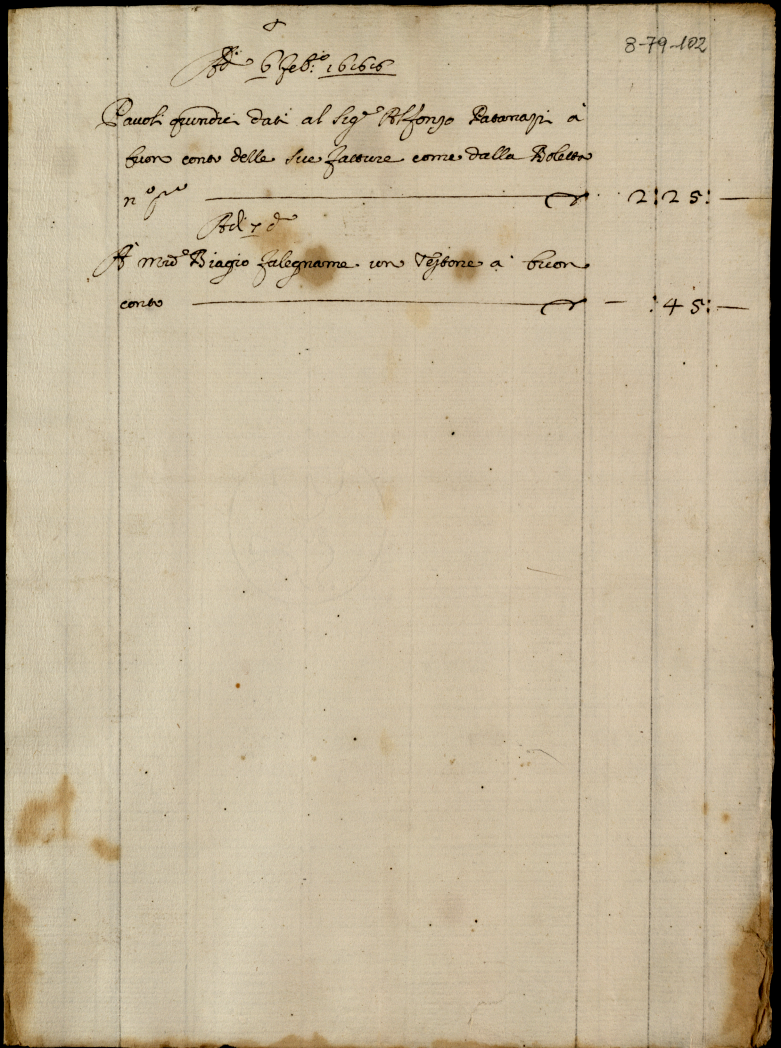 8-79-102
Adì 6 Feb:ro 1666
Pauoli quindici dati al Sig.r Alfonso Patanazzi à
buon conto delle sue fatture come dalla Boletta
n.o p.mo 2:25:
Adì 7 d.o
A m.ro Biagio falegname un Testone à buon
conto :45: